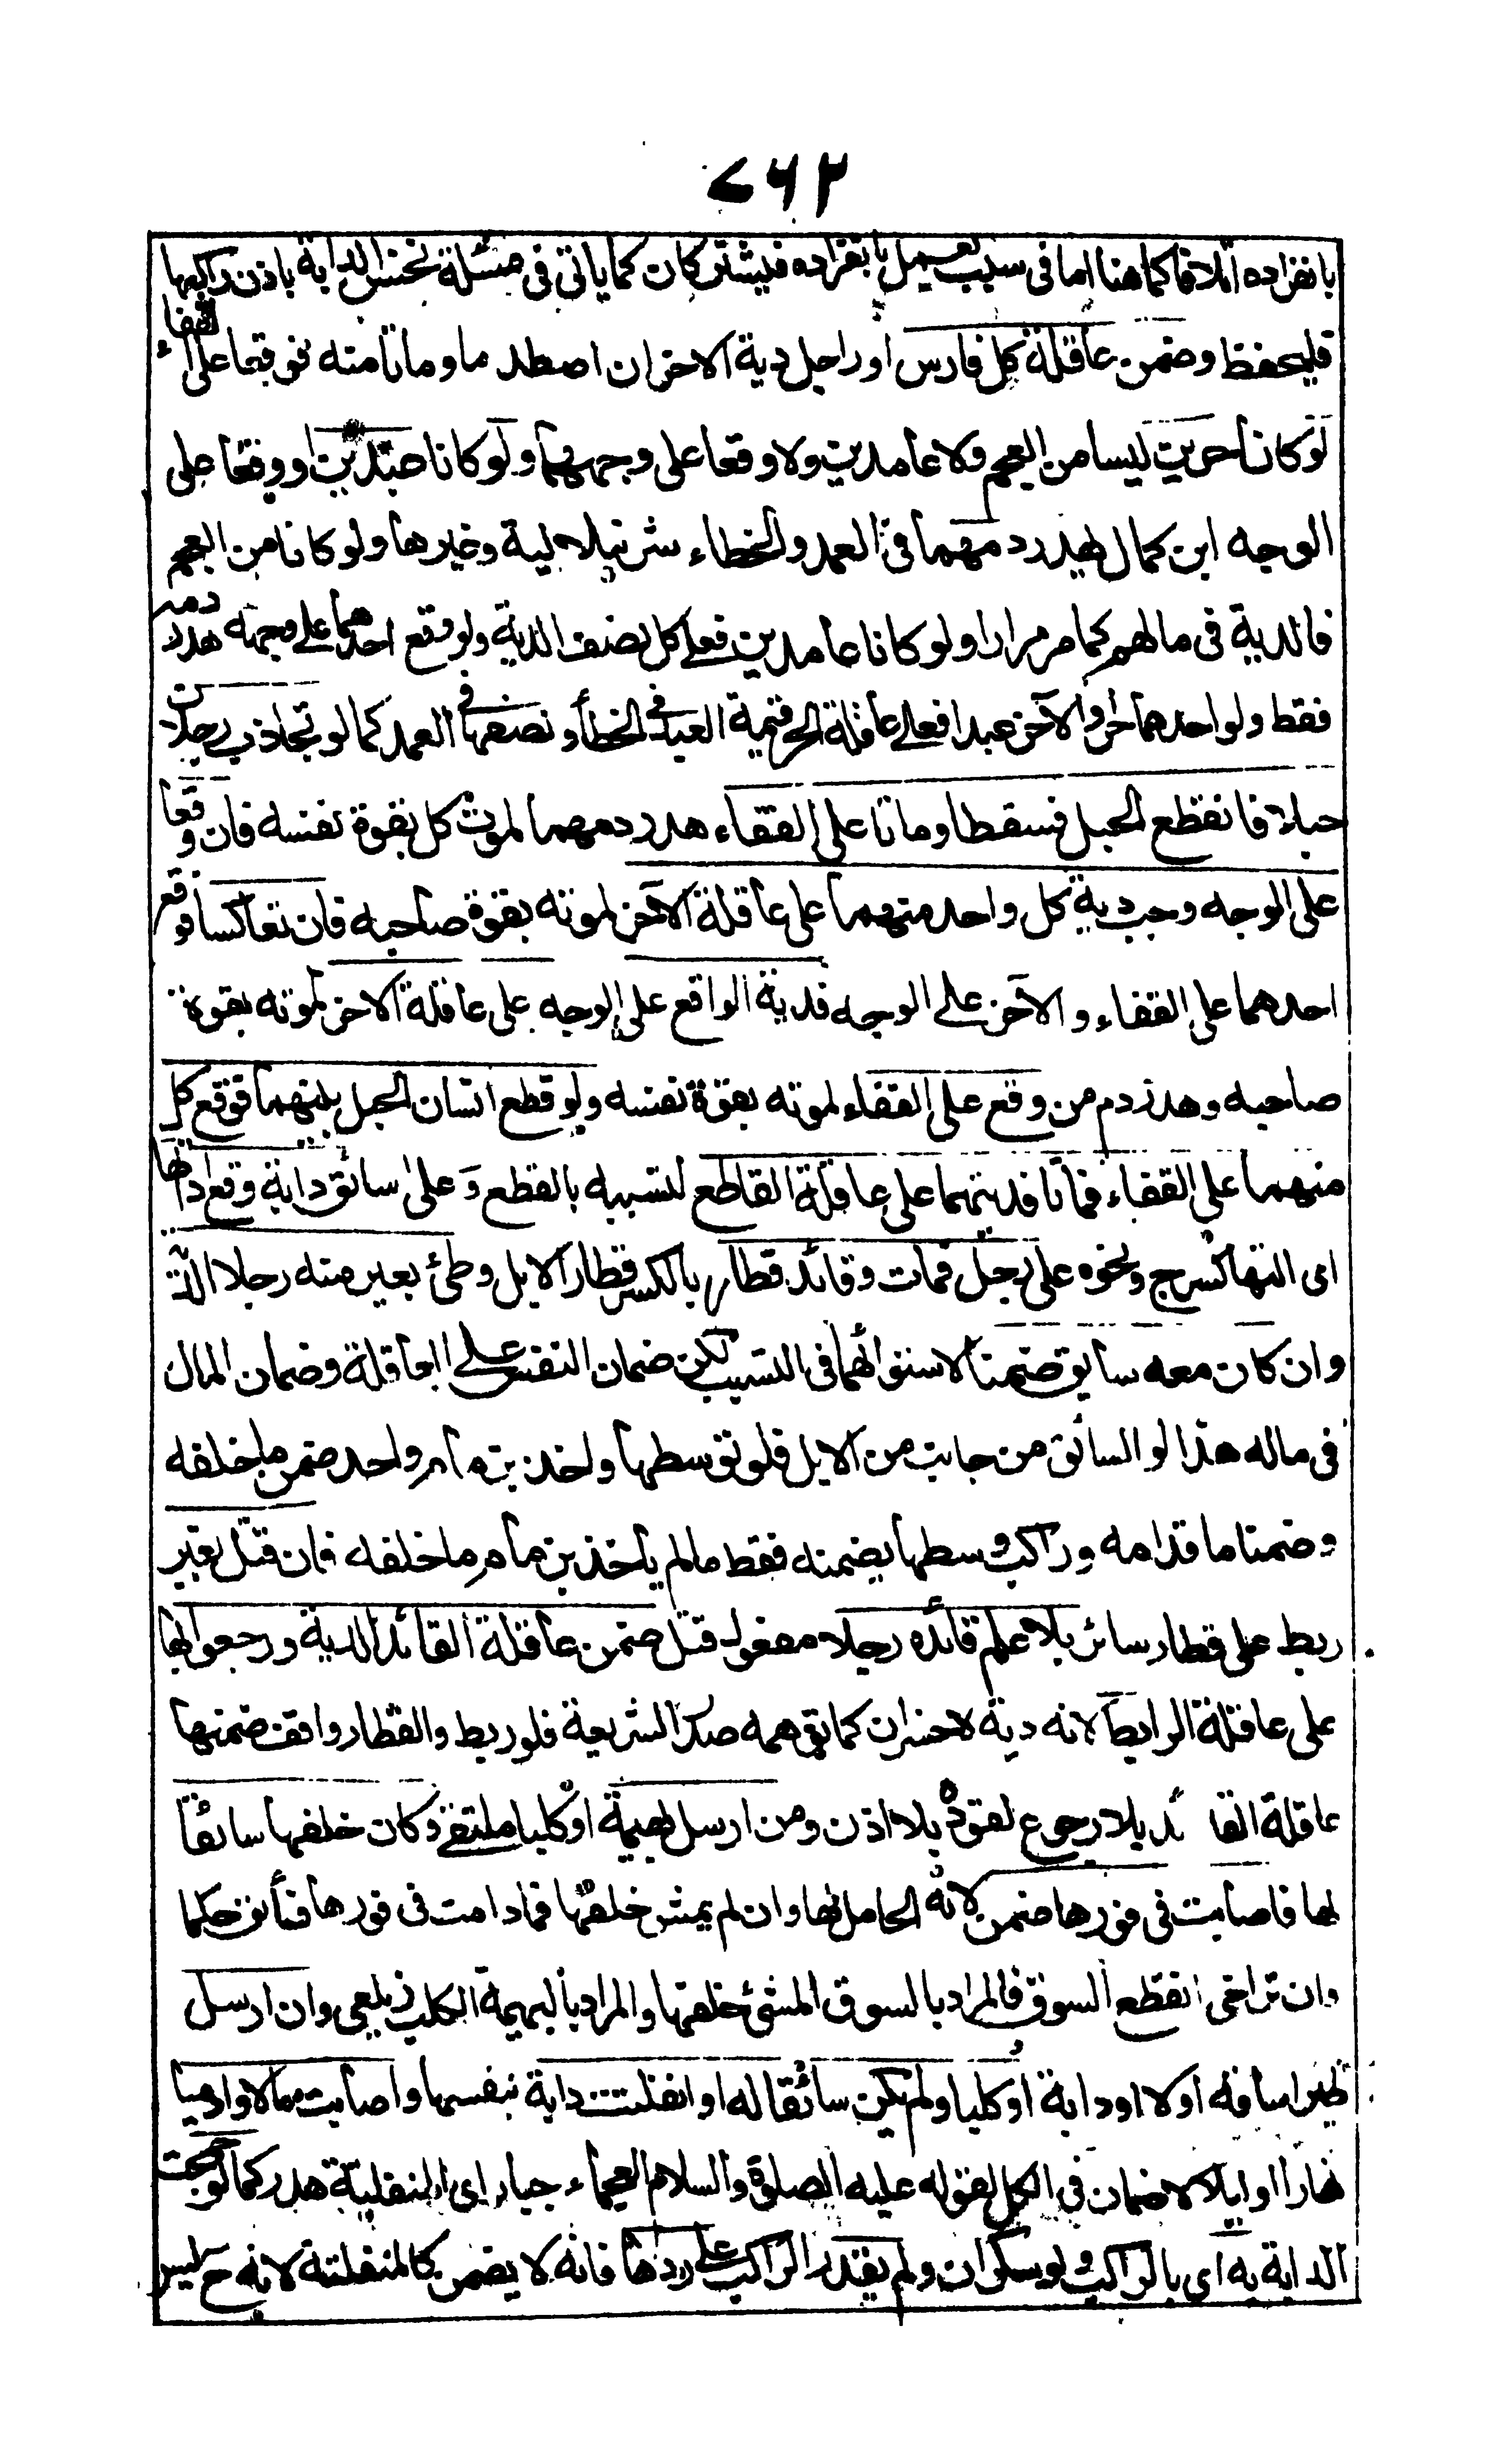 ٧٦٢
بانفراده اتلافا كما هنا اما فى سبب يعمل بانفراده فيشتركان كما ياتى فى مسئلة نخس الدابة باذن راكبها
فليحفظ وضمن عاقلة كل فارس او راجل دية الاخر ان اصطدما وماتا منه فوقعا على القفاء
لو كانا حرين ليسا من العجم ولا عامدين ولا وقعا على وجههما ولو كانا عبدين او وقعا على
الوجه ابن كمال يهدر دمهما فى العمد والخطاء شرنبلالية وغيرها ولو كانا من العجم
فالدية فى مالهم كما مر مرارا ولو كانا عامدين فعلى كل نصف الدية ولو وقع احدهما على وجهه هدر دمه
فقط ولو احدهما حرا والآخر عبدا فعلى عاقلة الحر قيمة العبد فى الخطأ ونصفها فى العمد كما لو تجاذب رجلان
حبلا فانقطع الحبل فسقطا وماتا على القفاء هدر دمهما لموت كل بقوة نفسه فان وقعا
على الوجه وجب دية كل واحد منهما على عاقلة الآخر لموته بقوة صاحبه فان تعاكسا فوقع
احدهما على القفاء والآخر على الوجه فدية الواقع على الوجه على عاقلة الاخر لموته بقوة
صاحبه وهدر دم من وقع على القفاء لموته بقوة نفسه ولو قطع انسان الحبل بينهما فوقع كل
منهما على القفاء فماتا فديتهما على عاقلة القاطع لتسببه بالقطع وعلى سائق دابة وقع اداتها
اى التها كسرج ونحوه على رجل فمات وقائد قطار بالكسر قطار الابل وطئ بعير منه رجلا الدية
وان كان معه سايق ضمنا لاستوائهما فى التسبب لكن ضمان النفس على العاقلة وضمان المال
فى ماله هذا لو السائق من جانب من الابل فلو توسطها واخذ بزمام واحد ضمن ما خلفه
وضمنا ما قدامه وراكب وسطها يضمنه فقط ما لم ياخذ بزمام ما خلفه فان قتل بعير
ربط على قطار سائر بلا علم قائده رجلا مفعول قتل ضمن عاقلة القائد الدية ورجعوا بها
على عاقلة الرابط لانه دية لا خسران كما توهمه صدر الشريعة فلو ربط والقطار واقف ضمنها
عاقلة القائد بلا رجوع لقوده بلا اذن ومن ارسل بهيمة او كلبا ملتقى وكان خلفها سائقا
لها فاصابت فى فورها ضمن لانه الحامل لها وان لم يمش خلفها فما دامت فى فورها فسائق حكما
وان تراخى انقطع السوق فالمراد بالسوق المشى خلفها والمراد بالبهيمة الكلب زيلعى وان ارسل
طيرا ساقه او لا او دابة او كلبا ولم يكن سائقا له او انفلتت دابة بنفسها واصابت مالا او ادميا
نهارا او ليلا لا ضمان فى الكل لقوله عليه الصلوة والسلام العجماء جبار اى المنفلتة هدر كما لو جمحت
الدابة به اى بالراكب ولو سكران ولم يقدر الراكب على ردها فانه لا يضمن كالمنفلتة لانه ح ليس